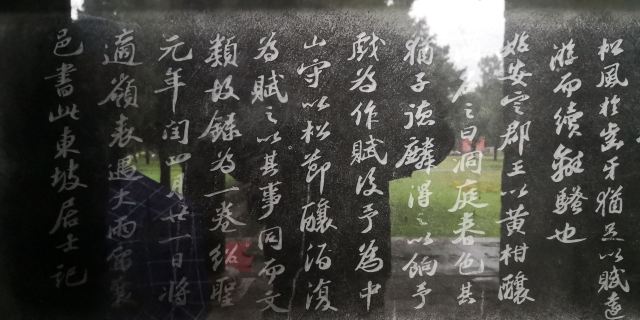 松風於齒牙猶足以賦遠
游而續離騷也
始安定郡王以黃柑釀
名之曰洞庭春色其
猶子德麟得之以餉予
戲為作賦後予為中
山守以松節釀酒復
為賦之以其事同而文
類故錄為一卷紹聖
元年閏四月廿一日將
適嶺表遇大雨留襄
邑書此東坡居士記